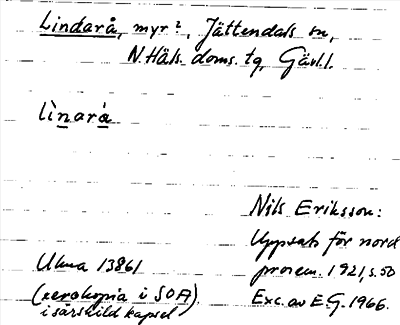 Lindarå, myr?, Jättendals sn,
N.Häls. doms. tg, Gävl.l.
lìnará
Nils Eriksson:
Uppsats för nord
prosem. 1921, s. 50
Exc. av E G. 1966.
Uluma 13861
(xerokopia i SOA)
i särskild kapsel